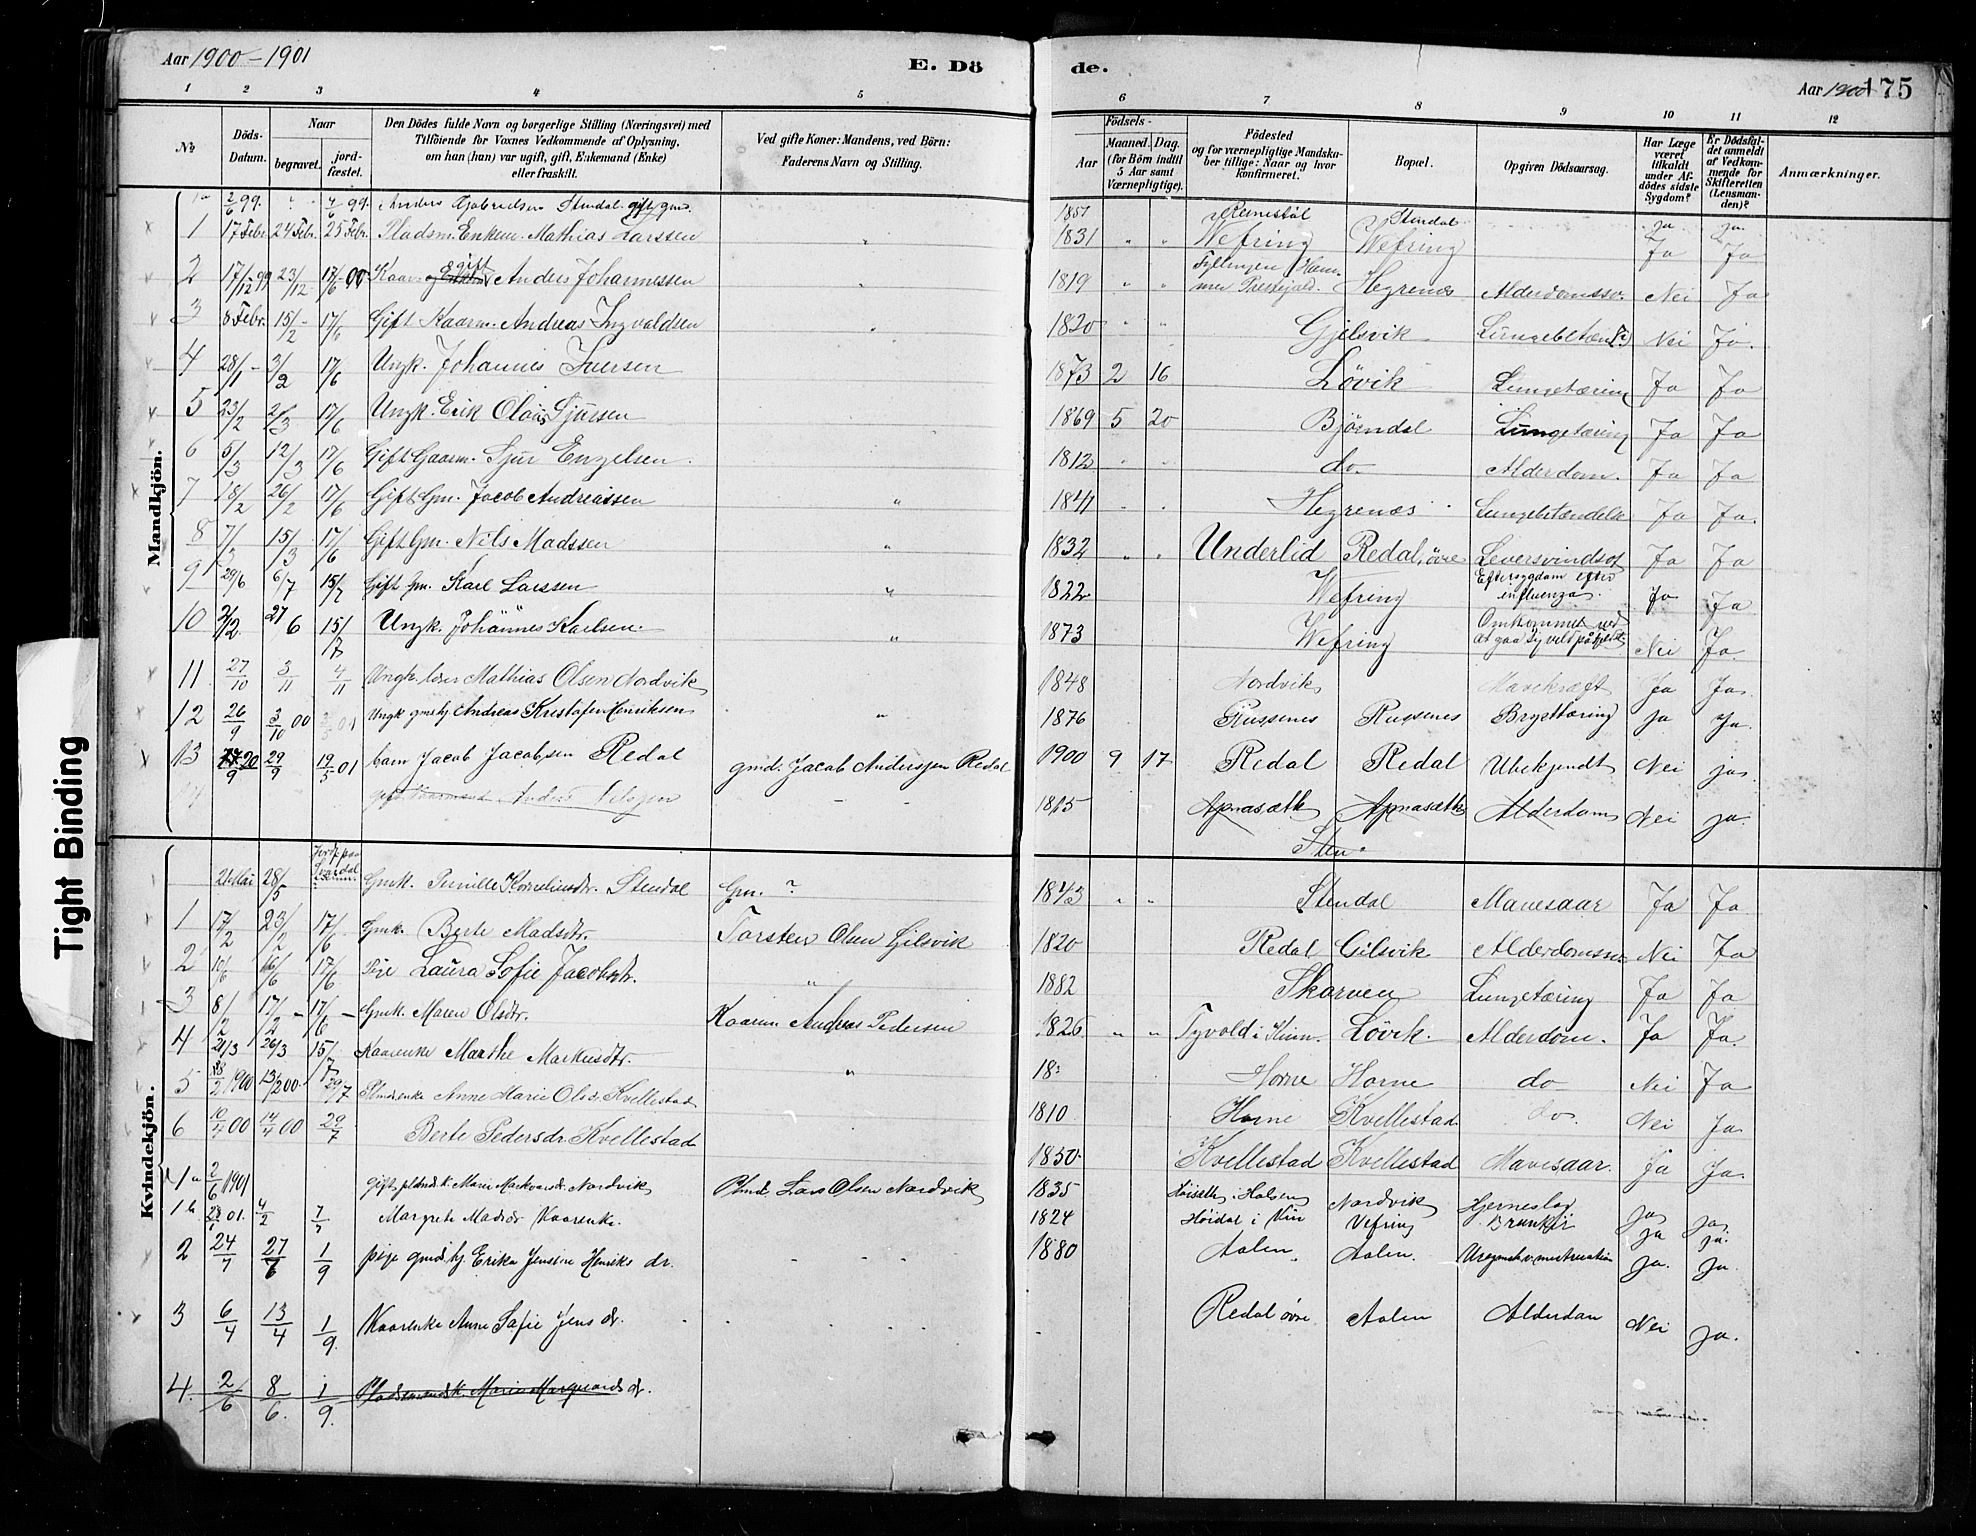 Aar 1900-1901
E. Dö
de.
Aar 1900
175
1 2 3 4 5 6 7 8 9 10 11 12
No
Döds-Datum.
Naar
begravet.
jord-fæstet.
Den Dödes fulde Navn og borgerlige Stilling (Næringsvei) med
Tilföiende for Voxnes Vedkommende af Oplysning,
om han (hun) var ugift, gift, Enkemand (Enke)
eller fraskilt.
Ved gifte Koner: Mandens, ved Börn:
Faderens Navn og Stilling.
Födsels-
Aar
Maaned. Dag.
(for Börn indtil 5 Aar samt Værnepligtige).
Födested
og for værnepligtige Mandska-
ber tillige: Naar og hvor
konfirmeret.
Bopæl.
Opgiven Dödsaarsag.
Har Læge været tilkaldt under Af-dödes sidste Sygdom?
Er Dödsfal-det anmeldt af Vedkom-mende for Skifteretten (Lensman-den)?
Anmærkninger.
Mandkjön.
1a 2/6 99. " 4/6 99. Anders Gabrielsen Stendal gift gm. 1851 Stendal ja ja
1 17 Febr. 24 Febr. 25 Febr. Pladsm. Enkem. Mathias Larssen " 1831 " " Wefring Wefring Ja Ja
2 17/12 99 23/12 17/6 00 Kaarm gift Anders Johannessen " 1819 " " Hegrenæs Alderdomssv. Nei Ja
3 8 Febr. 15/2 17/6 Gift Kaarm. Andreas Ingvaldsen " 1820 " " Gjelsvik Nei Ja.
4 28/1 3/2 17/6 Ungk. Johannes Iversen 1873 2 16 Lövik Lungetæring Ja Ja
5 23/2 2/3 17/6 Ungk. Erik Olaus Sjursen 1869 5 20 Björndal Lungetæring Ja Ja
6 5/3 12/3 17/6 Gift Gaarm. Sjur Engelsen. 1812 " " do Alderdom. Ja Ja
7 18/2 26/2 17/6 Gift Gm. Jacob Andreassen " 1841 " " Hegrenæs Lungebetændelse Ja Ja.
8 7/3 15/3 17/6 Gift Gm. Nils Madssen " 1832 " " Underlid Redal, övre Leversvindsot Ja Ja
9 29/6 6/7 15/7 Gift Gm. Karl Larssen " 1822 Wefring Eftersygdom efter influenza. Ja Ja
10 2/12 27 6 15/7 Ungk. Johannes Karlsen. " 1873 Wefring Omkommet ved Nei Ja.
11 27/10 3/11 4/11 Ungk. Mathias Olsen Nordvik 1848 Nordvik Mavekræft Ja Ja.
12 26/9 3/10 00 01 Ungk gmskj Andreas Kristofer Henriksen " 1876 Russenes Russenes Brysttæring ja Ja.
13 20/9 29/9 19/5 01 barn Jacob Jacobsen Redal gmd. Jacob Anderssen Redal 1900 9 17 Redal Redal Ubekjendt Nei ja.
14 gift Kaarmand Anders Nilssen - - 1815 Apnasæth Apnasæth Alderdom Nei ja.
Sten.
Kvindekjön.
21 Mai 28/5 Gmk. Pernille Korneliusdtr. Stendal Gm. ? 1843 " " Stendal Mavesaar Ja Ja
1 17/2 23/2 17/6 Gmk. Berte Madsdtr. Torsten Olsen Gilsvik 1820 Redal Gilsvik Alderdomssv. Nei Ja
2 10/6 16/6 17/6 Pige Laura Sofie Jacobsdtr. " 1882 Skorven Lungetæring Ja Ja
3 8/2 17/2 - 17/6 - Gmk. Maren Olsdtr. Kaarm Andreas Pedersen 1826 " " Tyvold i Kinn. Lövik. Alderdom. Ja Ja.
4 21/3 26/3 15/7 Kaarenke Marthe Markusdtr. " 18: Horne Horne do Nei Ja
5 1900 13/2 00 29/7 Plmdsenke Anne Marie Olsd. Kvellestad 1810 Horne Kvellestad do. Nei Ja
6 10/4 00 14/4 00 29/7 Berte Pedersdr. Kvellestad 1850 Kvellestad Kvellestad Mavesaar. Ja Ja.
1a 2/6 1901 gift pldsk. Marie Markvarsdr. Nordvik Plmd. Lars Olsen Nordvik 1835 Nordvik Hjerneslag Ja ja.
1b 01. 4/2 7/7 Margrete Madsdr Kaarenke. 1824 Höidal i Vefring Ja ja.
2 24/7 27/6 1/9 pige gmd.kj. Erika Jensine Henriks dr. - - - 1880 Aalen. Aalen. ja. Ja.
3 6/4 13/4 1/9. Kaarenke Anne Sofie Jens dr. - - Redal övre Aalen Alderdom Nei ja.
4. 2/6 8/6. 1/9. Pladsmands k. Marie Marquards dr.
Tight Binding